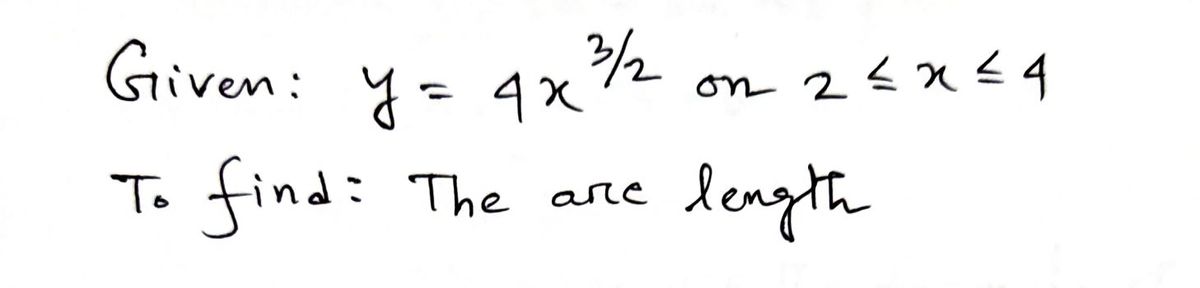 Given: y = 4x^{3/2} on 2 ≤ x ≤ 4
To find: The arc length